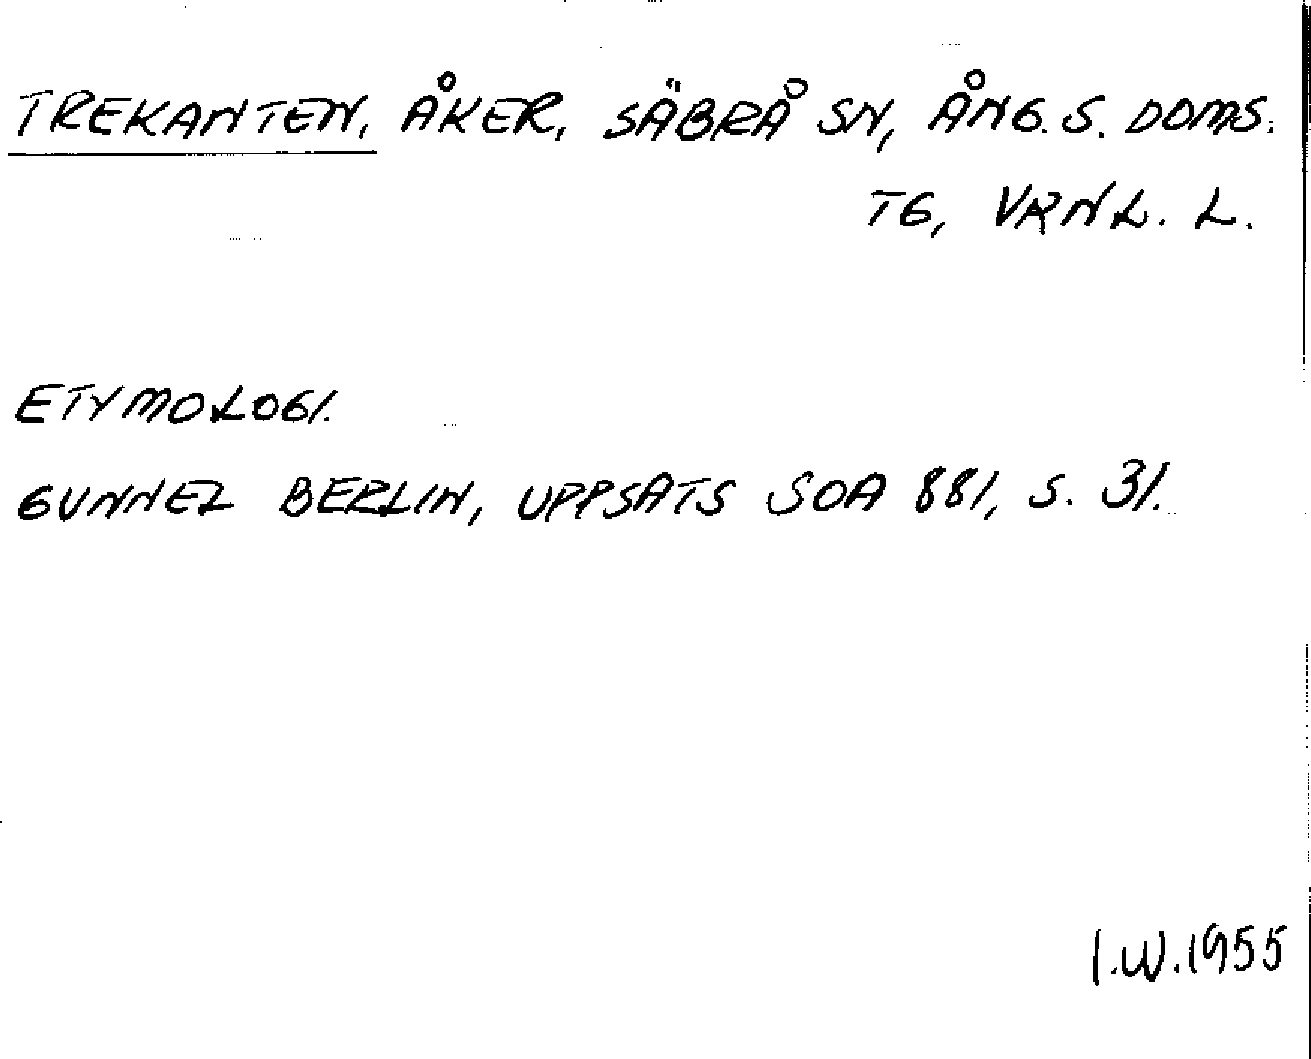 TREKANTEN, ÅKER, SÄBRÅ SN, ÅNG. S. DOMS.
TG, VRNL. L.
ETYMOLOGI.
GUNNEL BERLIN, UPPSATS SOA 881, S. 31.
I.W.1955